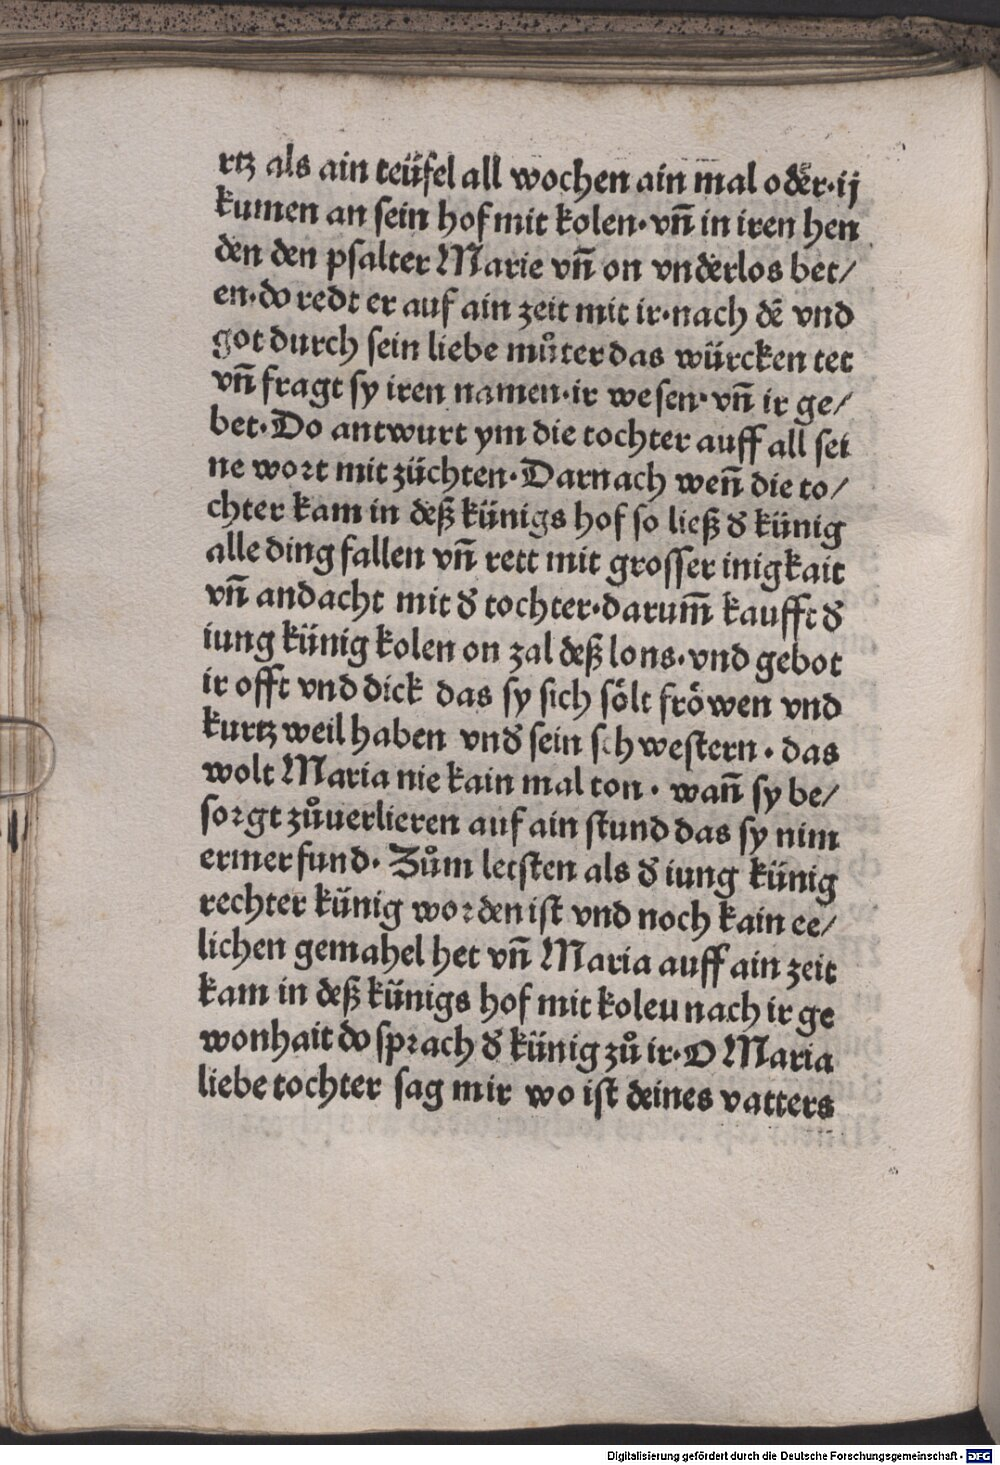 rtz als ain teüfel all wochen ain mal oder·ij
kumen an sein hof mit kolen·vn̄ in iren hen
den den psalter Marie vn̄ on vnderlos bet/
en·do redt er auf ain zeit mit ir·nach dē vnd
got durch sein liebe můter das würcken tet
vn̄ fragt sy iren namen·ir wesen·vn̄ ir ge/
bet·Do antwurt ym die tochter auff all sei
ne wort mit züchten·Darnach wen̄ die to/
chter kam in deß künigs hof so ließ d̕ künig
alle ding fallen vn̄ rett mit grosser inigkait
vn̄ andacht mit d̕ tochter·darum̄ kaufft d̕
iung künig kolen on zal deß lons·vnd gebot
ir offt vnd dick das sy sich sölt fröwen vnd
kurtz weil haben vnd̕ sein schwestern·das
wolt Maria nie kain mal ton·wan̄ sy be/
sorgt zůuerlieren auf ain stund das sy nim
ermer fund·Zům letsten als d̕ iung künig
rechter künig worden ist vnd noch kain ee/
lichen gemahel het vn̄ Maria auff ain zeit
kam in deß künigs hof mit koleu nach ir ge
wonhait do sprach d̕ künig zů ir·O Maria
liebe tochter sag mir wo ist deines vatters
Digitalisierung gefördert durch die Deutsche Forschungsgemeinschaft - DFG